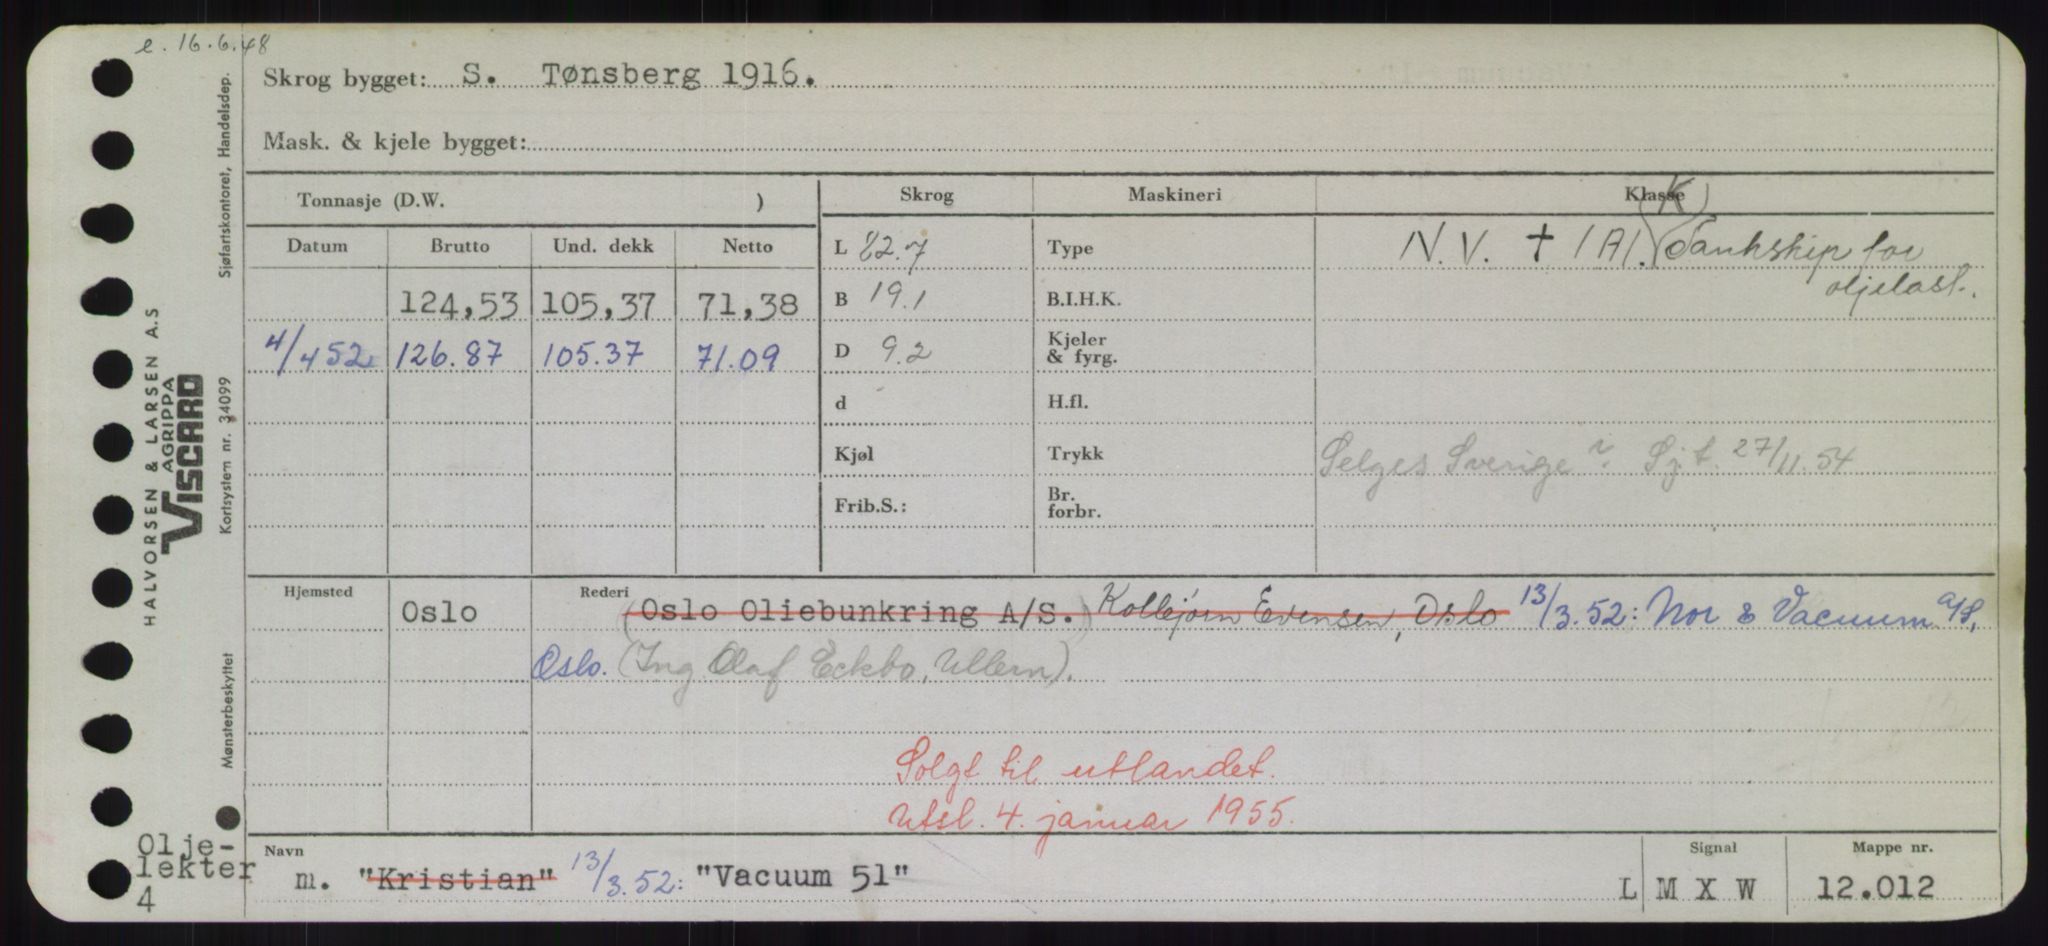 e. 16.6.48
Skrog bygget: S. Tønsberg 1916.
Mask. & kjele bygget:
Tonnasje (D.W. )
Skrog
Maskineri
Klasse
K
Datum
Brutto
Und. dekk
Netto
L 82.7
Type
N.V. + 1A1. Tankskip for
oljelast.
124,53 105,37 71,38
B 19.1
B.I.H.K.
4/4 52 126.87 105.37 71.09
D 9.2
Kjeler
& fyrg.
d
H.fl.
Kjøl
Trykk
Selges Sverige i. Sj.t. 27/11 54
Frib.S.:
Br.
forbr.
Hjemsted
Oslo
Rederi
(Oslo Oliebunkring A/S.) Kolbjørn Evensen, Oslo 13/3.52: Nor & Vacuum A/S,
Oslo. (Ing Olaf Eckbo, Ullern).
Solgt til utlandet.
Utsl. 4. januar 1955.
Olje-
lekter
4
Navn
m. "Kristian" 13/3.52: "Vacuum 51"
Signal
L M X W
Mappe nr.
12.012
HALVORSEN & LARSEN A.S
AGRIPPA
VISCARD
Sjøfartskontoret, Handelsdep.
Kortsystem nr. 34099
Mønsterbeskyttet